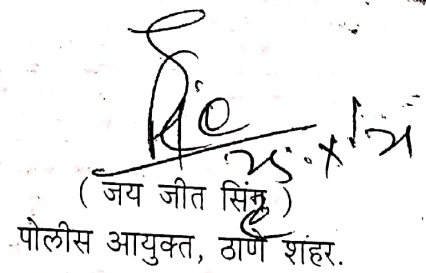 ( जय जीत सिंह )
पोलीस आयुक्त, ठाणे शहर.